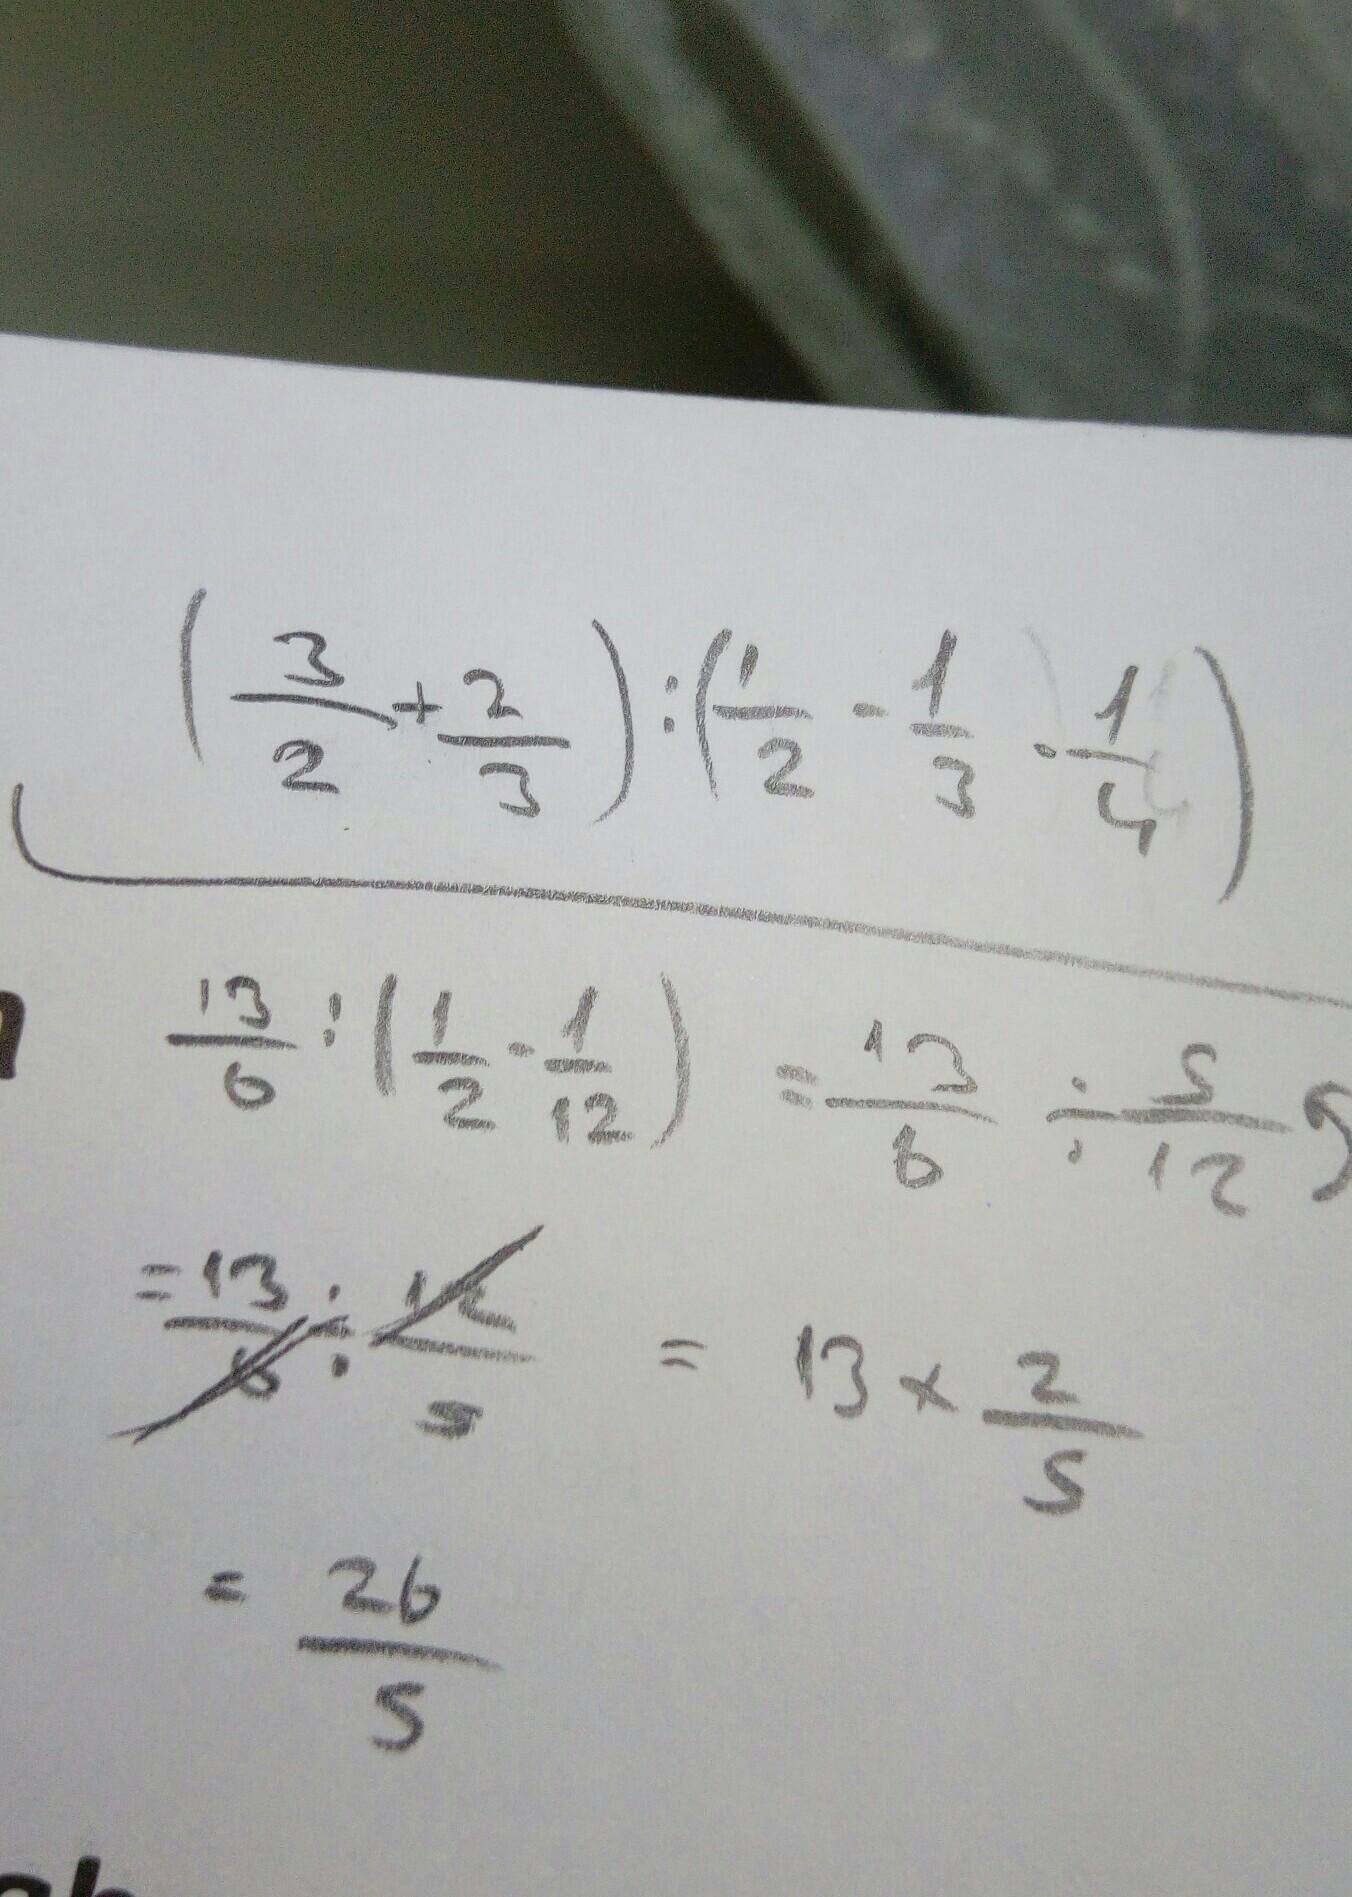 (3/2 + 2/3) : (1/2 - 1/3 · 1/4)
13/6 : (1/2 - 1/12) = 13/6 ÷ 5/12
= 13/6 ÷ 12/5 = 13 × 2/5
= 26/5